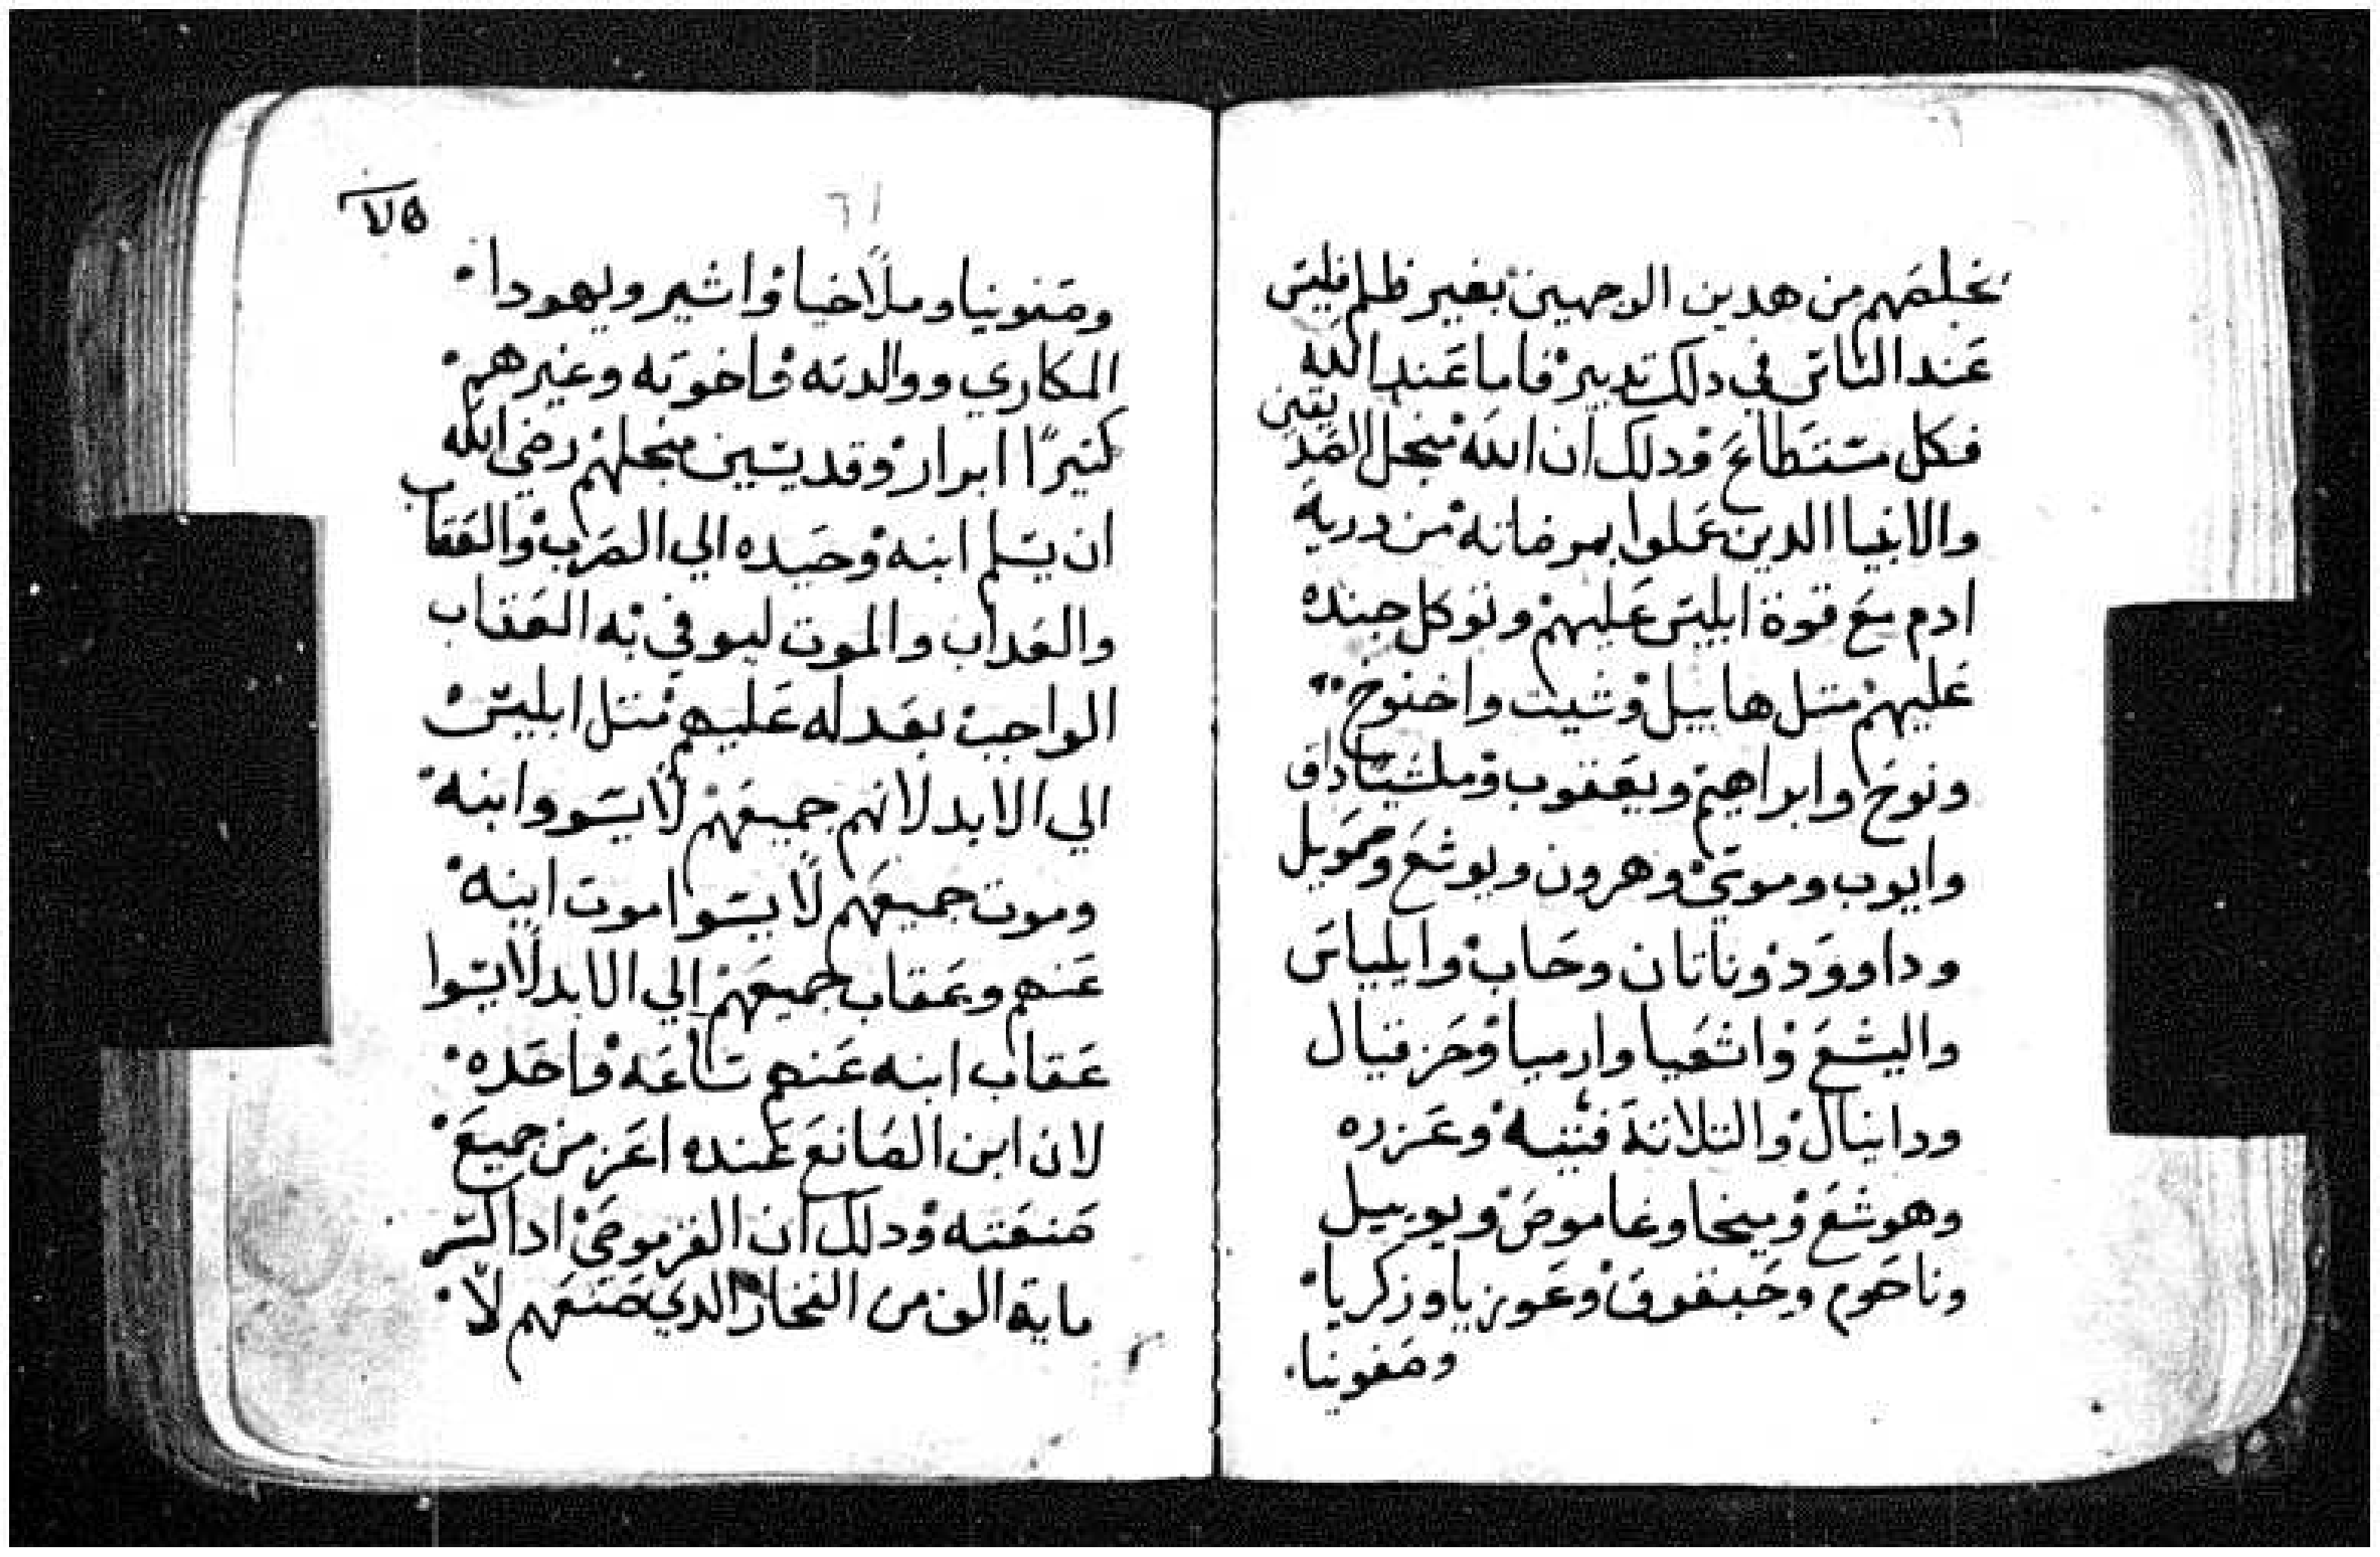 يخلصهم من هدين الوجهين بغير ظلم فليس
عند الناس في دلك تدبير فاما عند الله
فكل مستطاع ودلك ان الله منجل الصديقين
والانبيا الدين عملوا بمرضاته من درية
ادم مع قوة ابليس عليهم وتوكل جنده
عليهم متل هابيل وشيت واخنوخ
ونوح وابراهيم ويعقوب وملشيساداق
وايوب وموسي وهرون ويوشع وصمويل
وداوود وناتان وحاب وايلياس
واليشع واشعيا وارميا وحزقيال
ودانيال والتلاتة فتيه وعزره
وهوشع وميخا وعاموص ويوييل
وناحوم وحبقوق وعوزيا وزكريا
وصفونيا
ومفونيا وملاخيا واشير ويهودا
المكاري ووالدته واخوته وغيرهم
كتيرا ابرار وقديسين منجلهم رضي الله
ان يسلم ابنه وحيده الي الضرب والعقاب
والعداب والموت ليوفي به العقاب
الواجب بعدله عليهم متل ابليس
الي الابد لانهم جميعهم لا يسووا ابنه
وموت جميعهم لا يسوا موت ابنه
عنهم وعقاب جميعهم الي الابد لا يسوا
عقاب ابنه عنهم ساعه واحده
لان ابن الصانع عنده اعز من جميع
صنعته ودلك ان القرموصي ادا كسر
ماية الف من الفخار الدي صنعهم لا